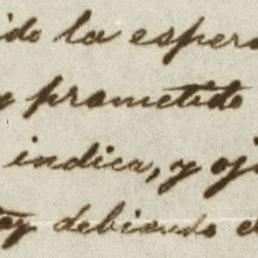 ido la espera
y prometido
indica, y oj
toy debiendo e